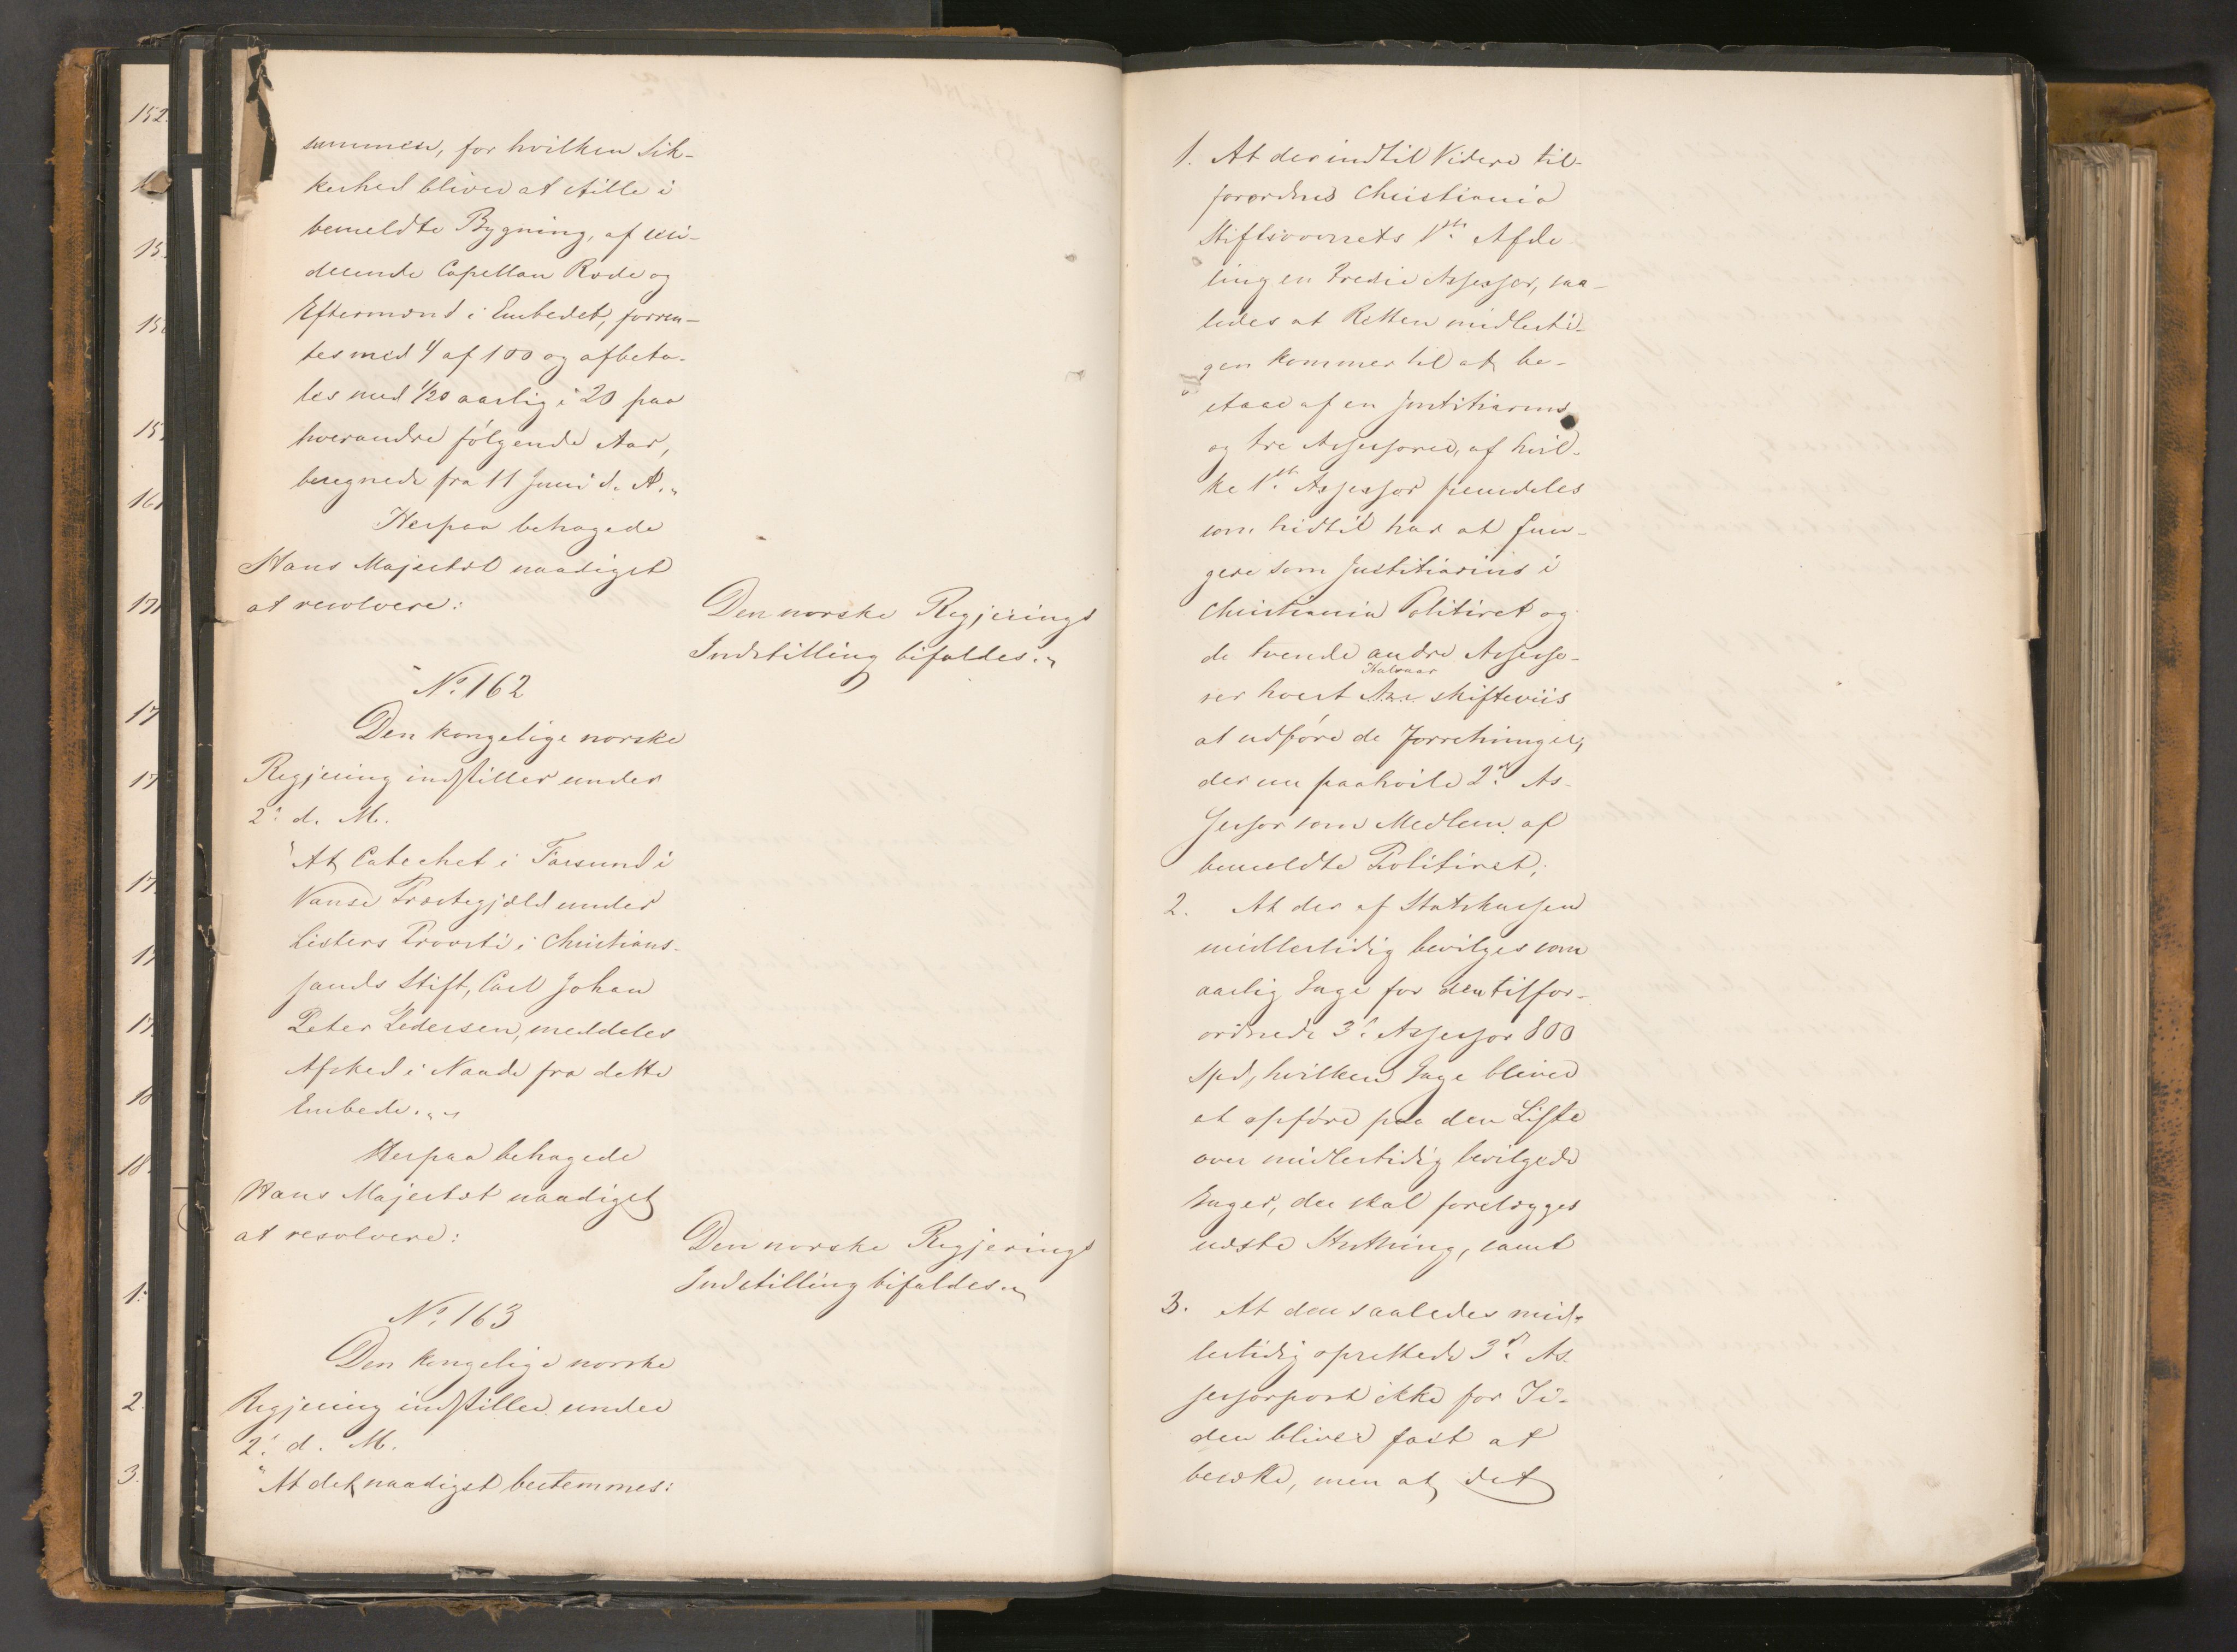 summen, for hvilken Sik-
kerhed bliver at stille i
bemeldte Bygning, af resi-
derende Capellan Rode og
Eftermænd i Embedet, forren-
tes med 4 af 100 og afbeta-
les med 1/20 aarlig i 20 paa
hverandre følgende Aar,
beregnede fra 11 Juni d. A."
Herpaa behagede
Hans Majestæt naadigst
at resolvere:
Den norske Regjerings
Indstilling bifaldes."
No. 162
Den kongelige norske
Regjering indstiller under
2. d. M.
"At Catechet i Farsund i
Vanse Præstegjæld under
Listers Provsti i Christians-
sands Stift, Carl Johan
Peter Pedersen, meddeles
Afsked i Naade fra dette
Embede."
Herpaa behagede
Hans Majestæt naadigst
at resolvere:
Den norske Regjerings
Indstilling bifaldes."
No. 163
Den kongelige norske
Regjering indstiller under
2. d. M.
"At det naadigst bestemmes:
1. At der indtil Videre til-
forordnes Christiania
Stiftsoverrets 1ste Afde
ling en tredie Assessor, saa-
ledes at Retten midlerti-
gen kommer til at be-
staae af en Justitiarius
og tre Assessorer, af hvil-
ke 1ste Assessor fremdeles
som hidtil har at fun-
gere som Justitiarius i
Christiania Politiret og
de tvende andre Assesso-
Halvaar
rer hvert Aar skifteviis
at udføre de Forretninger,
der nu paahvile 2den As-
sessor som Medlem af
bemeldte Politiret;
2. At der af Statskassen
midlertidig bevilges som
aarlig Gage for den tilfor-
ordnede 3die Assessor 800
Spd, hvilken Gage bliver
at opføre paa den Liste
over midlertidig bevilgede
Gager, der skal forelægges
næste Storthing, samt
3. At den saaledes mid-
lertidig oprettede 3die As-
sessorpost ikke for Ti-
den bliver fast at
besætte, men at det
152.
15.
15
15
161
171
17
17
17.
17
17.
18
18.
1.
2.
3.